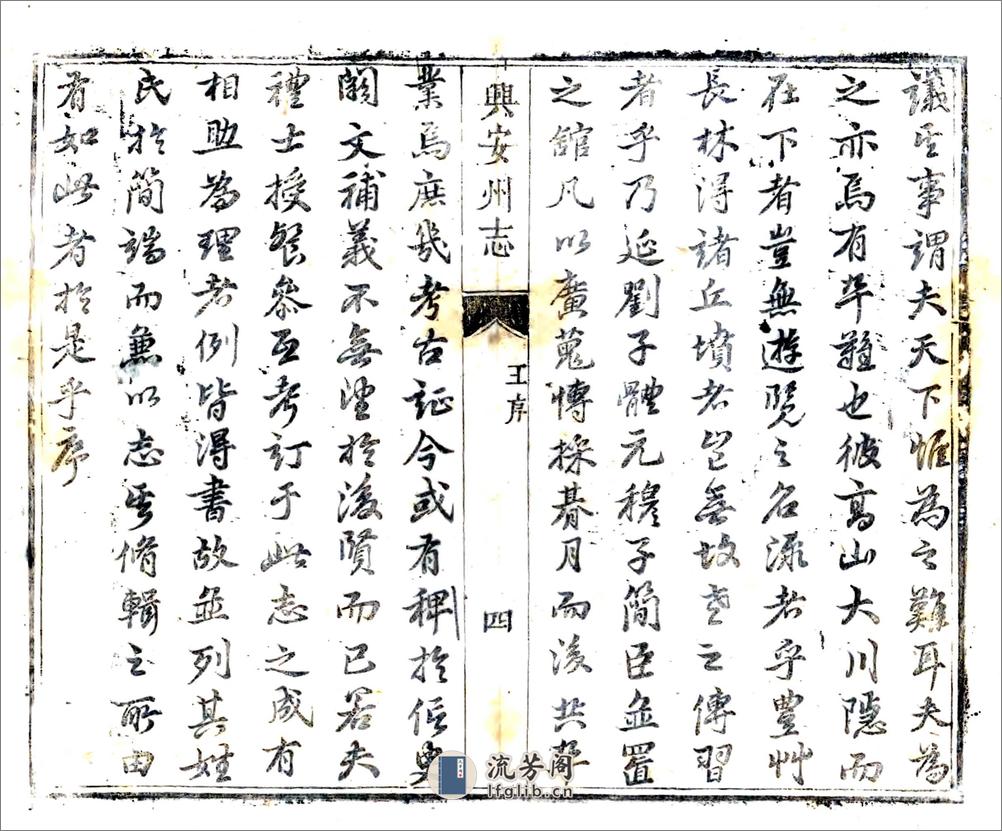 議其事謂夫天下惟為之難耳夫為
之亦焉有畢難也彼高山大川隱而
在下者豈無遊覽之名源者乎豐艸
長林得諸丘墳者豈無故老之傳習
者乎乃延劉子體元穆子簡臣並置
之館凡以廣蒐博採朞月而後共
興安州志
王序
四
業焉庶幾考古証今或有稗於信史
闕文補義不無望於後賢而已若夫
禮士授餐參互考訂于此志之成有
相助為理者例皆得書故並列其姓
氏於簡端而兼以志其脩輯之所由
有如此者於是乎序
流芳阁
lfglib.cn